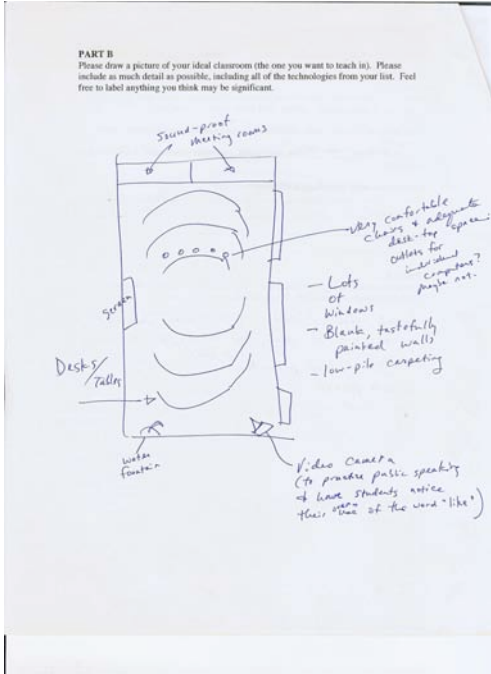 PART B
Please draw a picture of your ideal classroom (the one you want to teach in). Please
include as much detail as possible, including all of the technologies from your list. Feel
free to label anything you think may be significant.
Sound-proof
meeting rooms
Very comfortable
chairs & adequate
desk-top space
outlets for
individual
computers?
maybe not.
Screen
- Lots
of
Windows
- Blank, tastefully
painted walls
- low-pile carpeting
Desks/
Tables
water
fountain
Video Camera
(to practice public speaking
& have students notice
their use of the word "like")